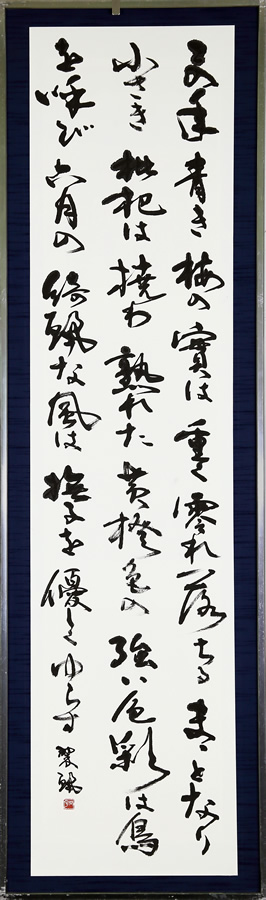 年青き梅の實は重く零れ落ちるまことなり
小さき枇杷は撓わ熟れた黄橙色の強い色彩は鳥
を呼び六月の綺麗な風は撫子を優しくゆらす